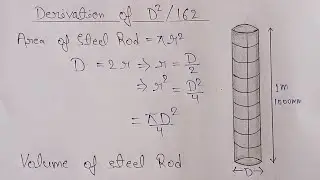 Derivation of D²/162
Area of Steel Rod = πr²
D = 2r ⇒ r = D/2
⇒ r² = D²/4
= πD²/4
Volume of Steel Rod
1m
1000mm
D